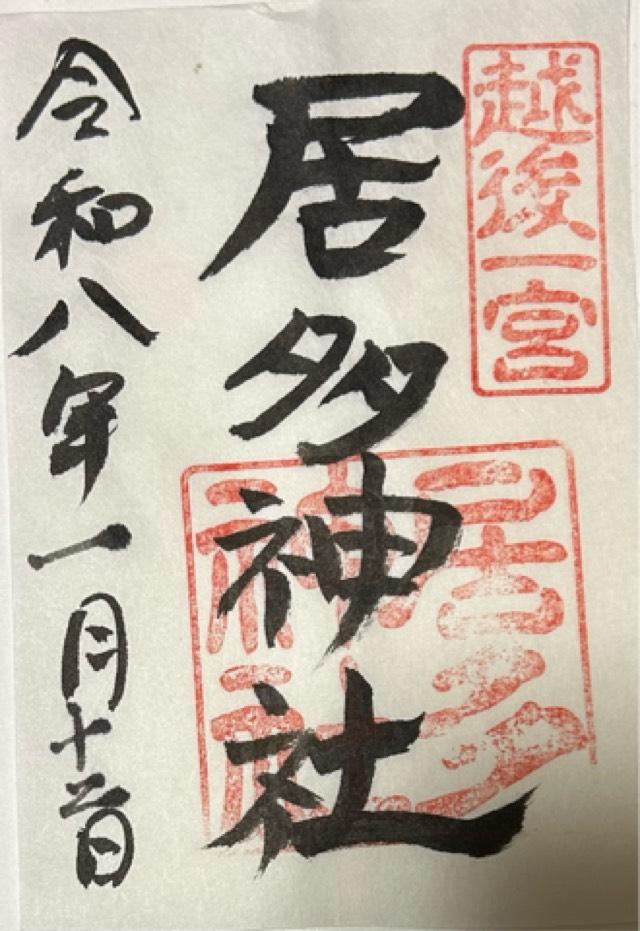 越後一宮
居多神社
居多神社
令和八年一月十二日